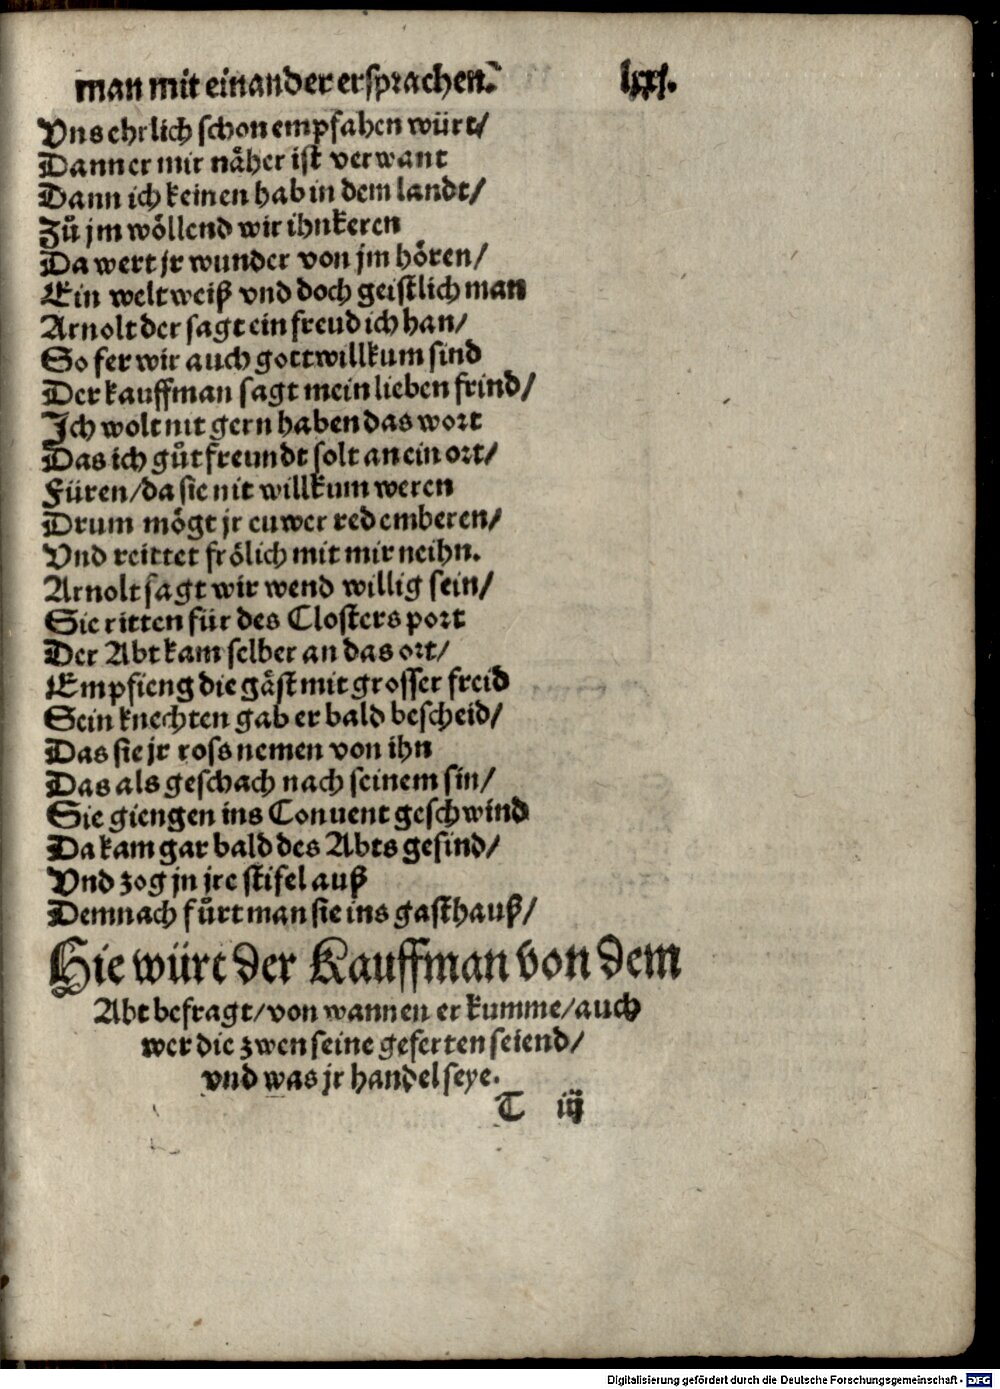 man mit einander ersprachen. lxxj.
Vns ehrlich schon empfahen würt/
Dann er mir nåher ist verwant
Dann ich keinen hab in dem landt/
Zů jm wöllend wir ihnkeren
Da wert jr wunder von jm hören/
Ein weltweiß vnd doch geistlich man
Arnolt der sagt ein freud ich han/
So fer wir auch gottwillkum sind
Der kauffman sagt mein lieben frind/
Ich wolt nit gern haben das wort
Das ich gůt freundt solt an ein ort/
Füren/da sie nit willkum weren
Drum mögt jr euwer red emberen/
Vnd reittet frölich mit mir neihn.
Arnolt sagt wir wend willig sein/
Sie ritten für des Closters port
Der Abt kam selber an das ort/
Empfieng die gäst mit grosser freid
Sein knechten gab er bald bescheid/
Das sie jr ross nemen von ihn
Das als geschach nach seinem sin/
Sie giengen ins Conuent geschwind
Da kam gar bald des Abts gesind/
Vnd zog jn jre stifel auß
Demnach fůrt man sie ins gasthauß/
Hie würt der Kauffman von dem
Abt befragt/von wannen er kumme/auch
wer die zwen seine geferten seiend/
vnd was jr handel seye.
T iij
Digitalisierung gefördert durch die Deutsche Forschungsgemeinschaft - DFG